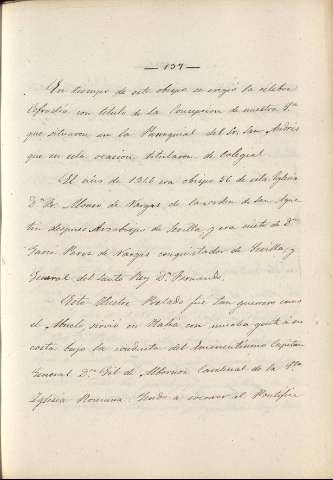 — 137 —
En tiempo de este obispo se erigio la célebre
Cofradia con título de la Concepcion de nuestra Sra
que situaron en la Parroquial del Sr. San Andrés
que en esta ocasion titularon de Colegial.
El año de 1346 era obispo 36 de esta Iglesia
Dn. Fr. Alonso de Vargas de la orden de San Agus
tin despues Arzobispo de Sevilla y era nieto de Dn
Garci Perez de Vargas conquistador de Sevilla, y
General del Santo Rey Dn. Fernando.
Este Ilustre Prelado fué tan guerrero como
el Abuelo sirvio en Italia con mucha gente á su
costa bajo la conducta del Eminentisimo Capitan
General Dn. Gil de Albornoz Cardenal de la Sta
Iglesia Romana: Yendo á socorrer el Pontifice